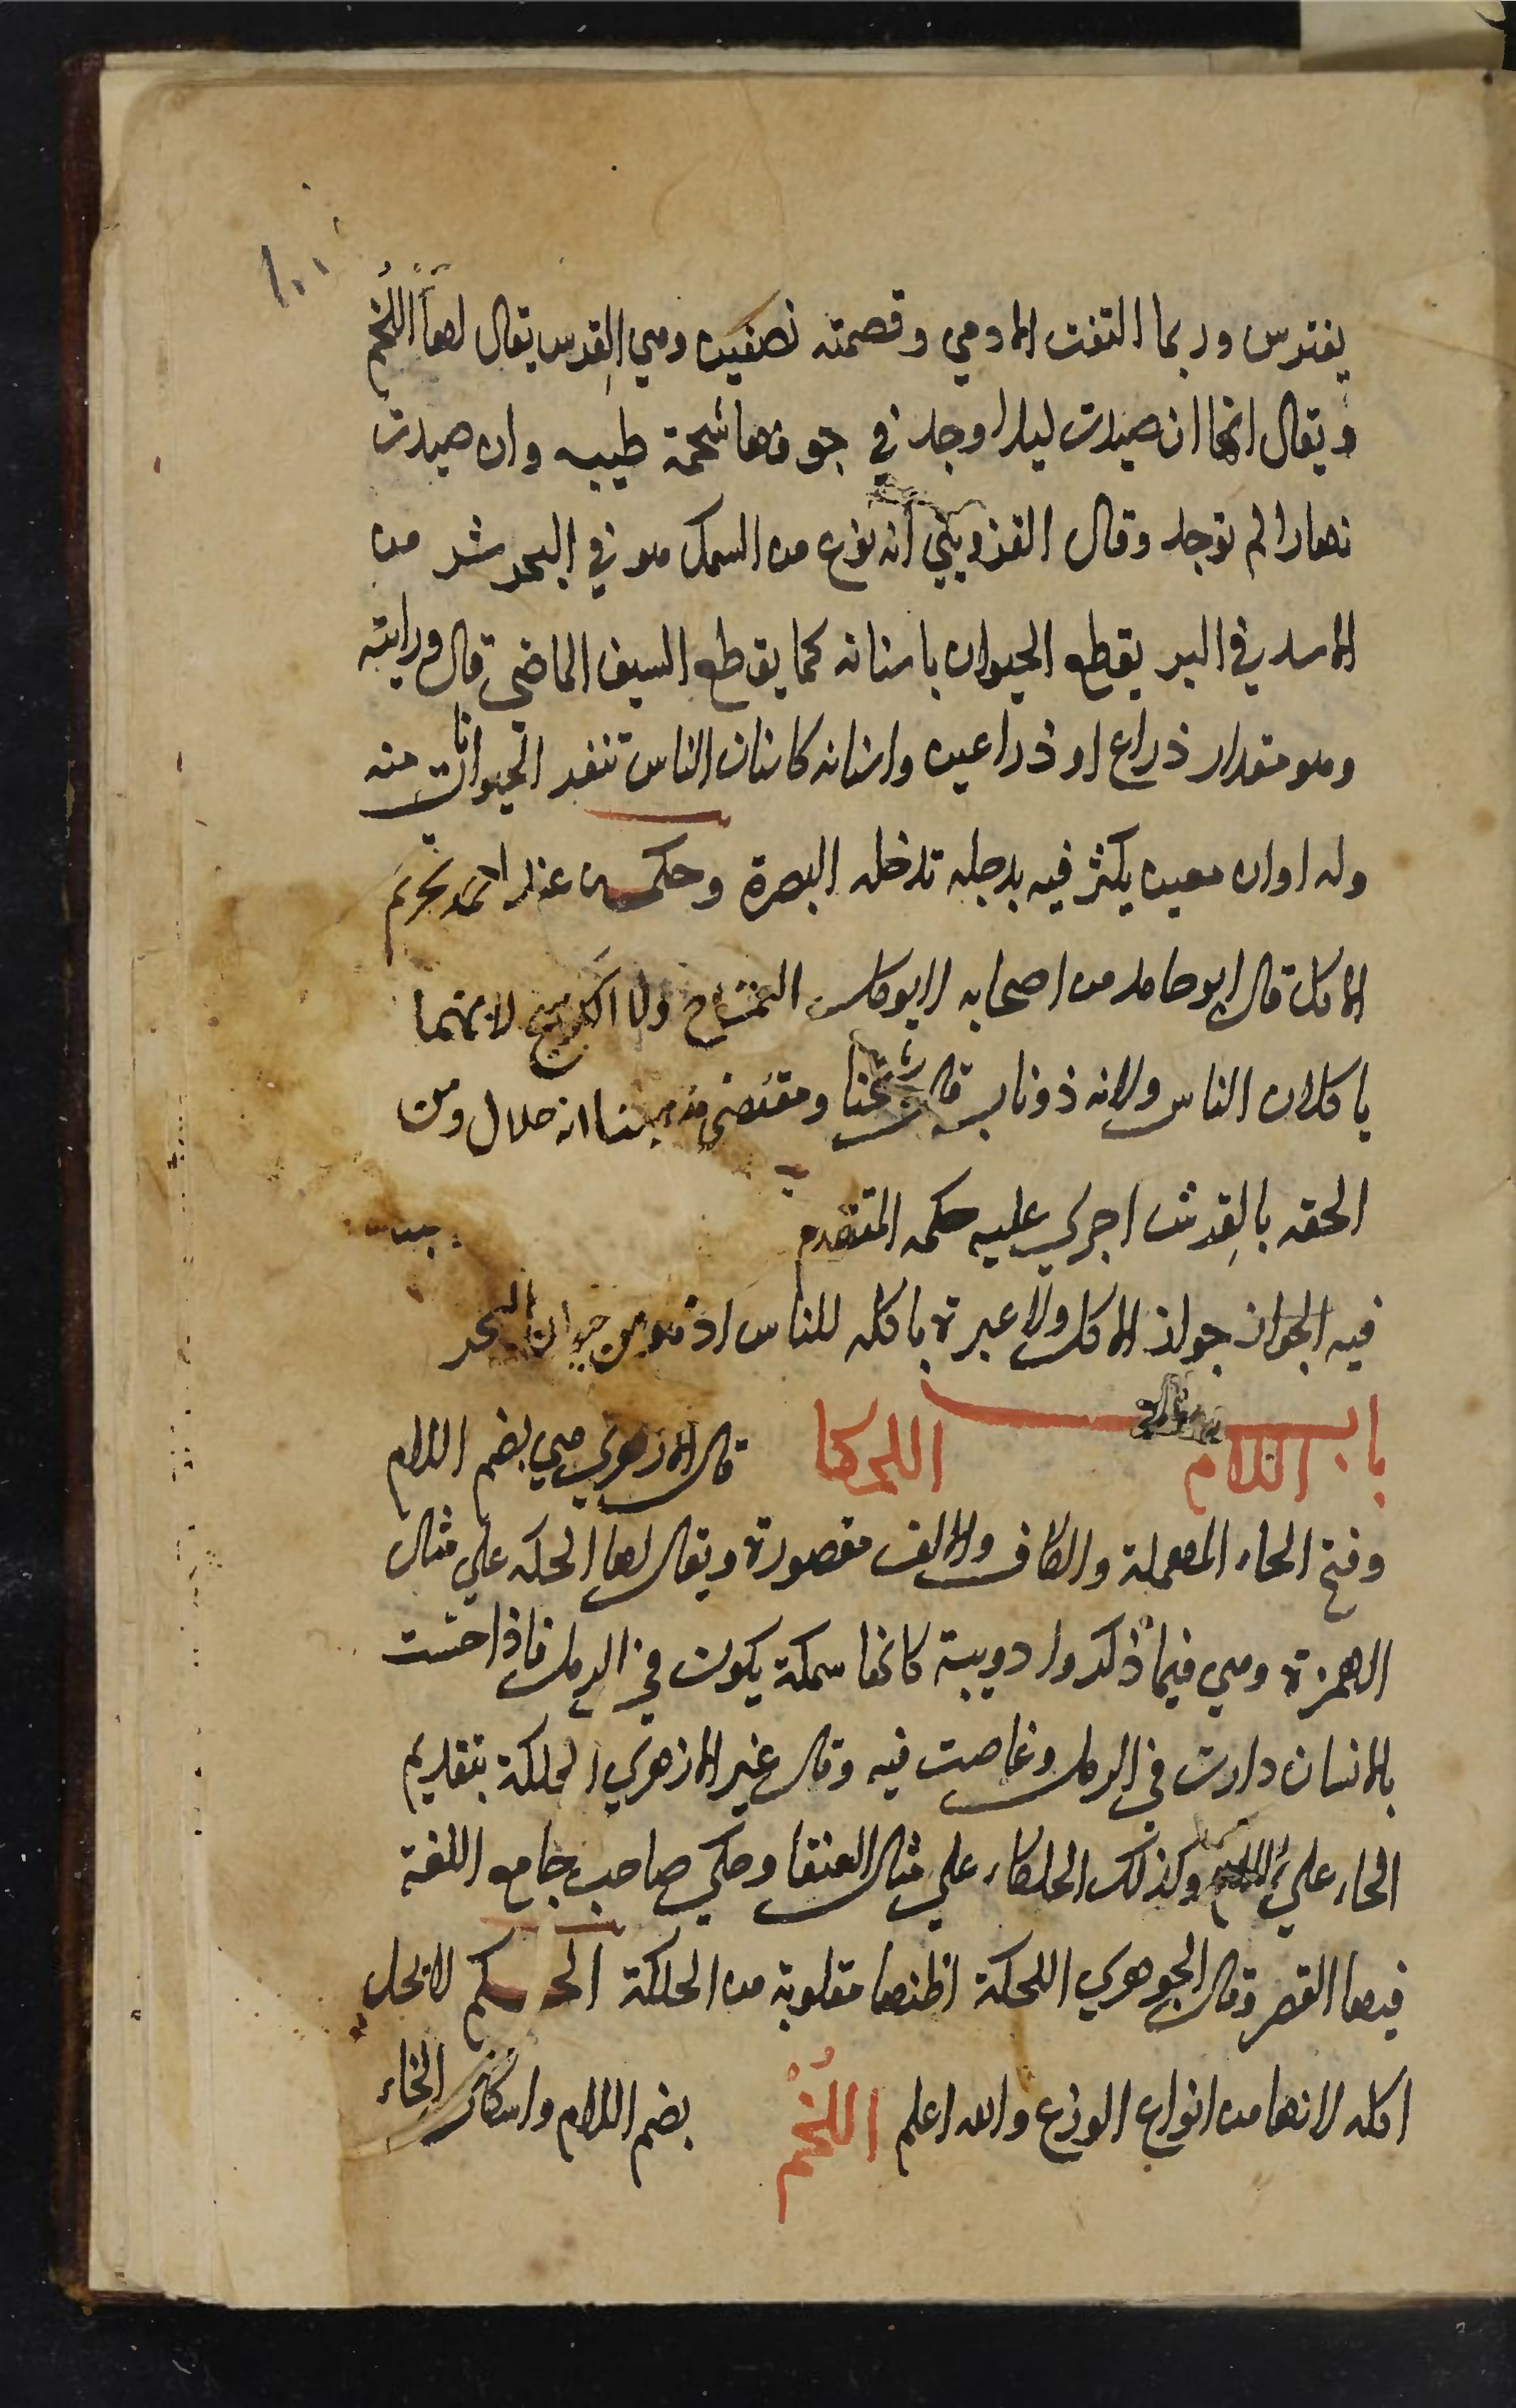 يفترس وربما التقت الادمي وقصمته نصفين وهي القرش يقال لها اللُّخْم
ويقال انها ان صيدت ليلا وجد في جوفها شحمة طيبه وان صيدت
نهارا لم توجد وقال القزويني انه نوع من السمك هو في البحر شر من
الاسد في البر يقطع الحيوان باسنانه كما يقطع السيف الماضي قال ورايته
وهو مقدار ذراع او ذراعين واسنانه كاسنان الناس تنفر الحيوانات منه
وله اوان معين يكثر فيه بدجلة تدخله البصرة وحكمه عند احمد تحريم
الاكل قال ابو حامد من اصحابه لا يوكل التمساح ولا الكوسج لانهما
ياكلان الناس ولانه ذو ناب قال شيخنا ومقتضى مذهبنا انه حلال ومن
الحقه بالقرش اجرى عليه حكمه المتقدم
فيه الجواز جواز الاكل ولا عبرة باكله للناس اذ هو من حيوان البحر
باب اللام اللحكا قال الازهري هي بضم اللام
وفتح الحاء المهملة والكاف والالف مقصورة ويقال لها الحلكه علي مثال
الهمزة وهي فيما ذكروا دويبة كانها سمكة يكون في الرمل فاذا احست
بالانسان دارت في الرمل وغاصت فيه وقال غير الازهري الحلكة بتقديم
الحاء علي اللام وكذلك الحلكاء علي مثال العنقا وحكي صاحب جامع اللغة
فيها القصر وقال الجوهري اللحكة اظنها مقلوبة من الحلكة الحكم لا يحل
اكله لانها من انواع الوزغ والله اعلم اللُّخْم بضم اللام واسكان الخاء